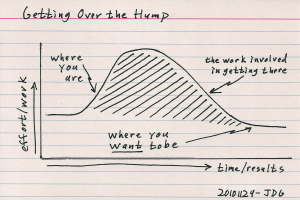 Getting Over the Hump
where
you
are
the work involved
in getting there
effort/work
where you
want to be
time/results
20101129-JDG